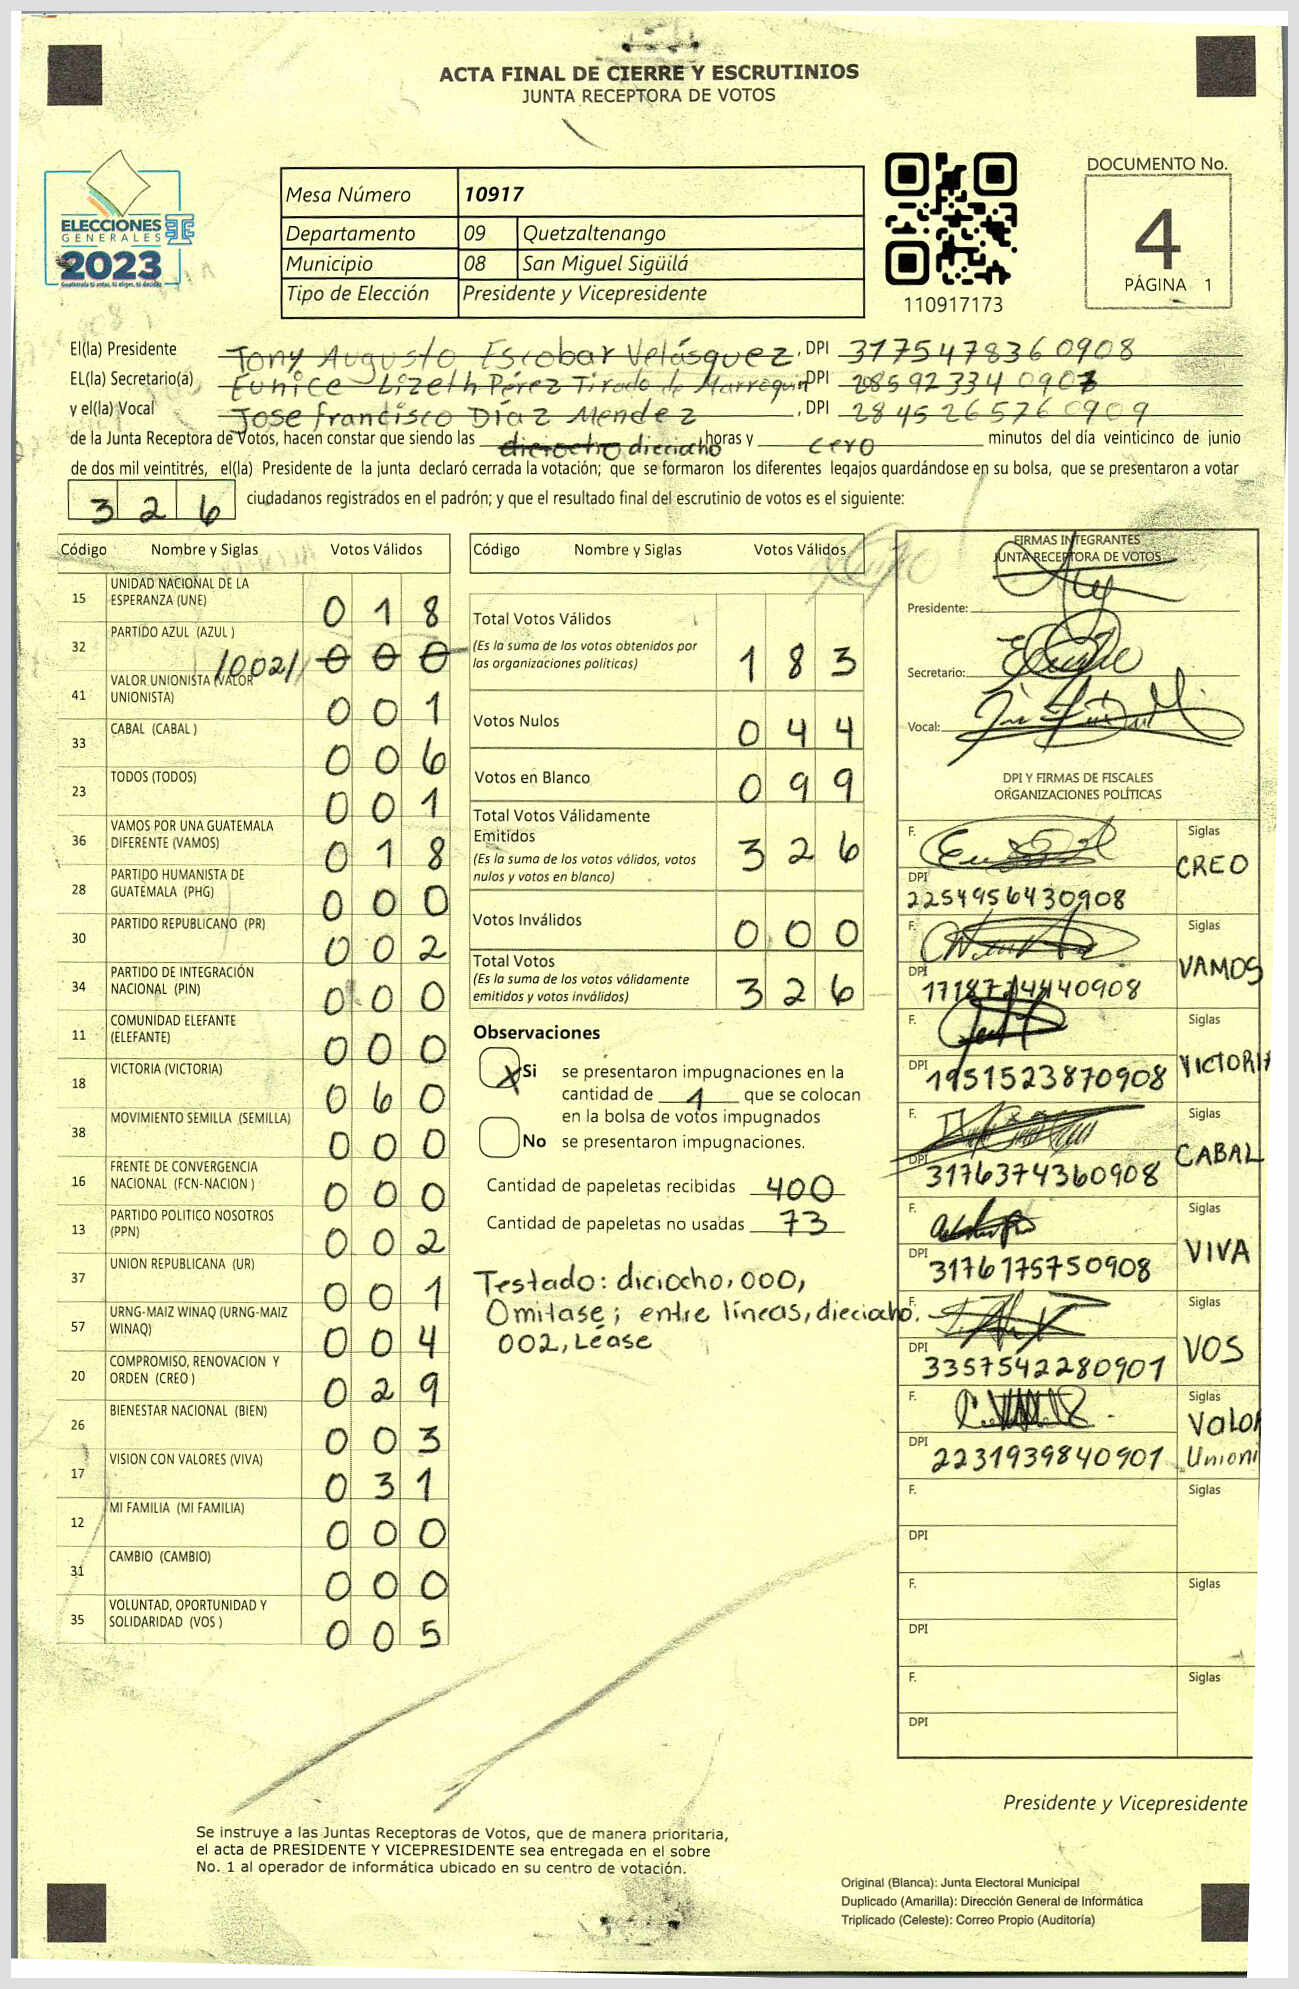 ACTA FINAL DE CIERRE Y ESCRUTINIOS
JUNTA RECEPTORA DE VOTOS
ELECCIONES
GENERALES
2023
Guatemala tú votas, tú eliges, tú decides
Mesa Número 10917
Departamento 09 Quetzaltenango
Municipio 08 San Miguel Sigüilá
Tipo de Elección Presidente y Vicepresidente
110917173
DOCUMENTO No.
4
PÁGINA 1
El(la) Presidente Tony Augusto Escobar Velásquez, DPI 3175478360908
EL(la) Secretario(a) Eunice Lizeth Pérez Tirado de Marroquin DPI
y el(la) Vocal Jose Francisco Díaz Mendez, DPI 2845265760909
de la Junta Receptora de Votos, hacen constar que siendo las diciocho dieciocho horas y cero minutos del día veinticinco de junio
de dos mil veintitrés, el(la) Presidente de la junta declaró cerrada la votación; que se formaron los diferentes legajos guardándose en su bolsa, que se presentaron a votar
326 ciudadanos registrados en el padrón; y que el resultado final del escrutinio de votos es el siguiente:
Código Nombre y Siglas Votos Válidos
15 UNIDAD NACIONAL DE LA ESPERANZA (UNE) 018
32 PARTIDO AZUL (AZUL ) /002/ 000
41 VALOR UNIONISTA (VALOR UNIONISTA) 001
33 CABAL (CABAL ) 006
23 TODOS (TODOS) 001
36 VAMOS POR UNA GUATEMALA DIFERENTE (VAMOS) 018
28 PARTIDO HUMANISTA DE GUATEMALA (PHG) 000
30 PARTIDO REPUBLICANO (PR) 002
34 PARTIDO DE INTEGRACIÓN NACIONAL (PIN) 000
11 COMUNIDAD ELEFANTE (ELEFANTE) 000
18 VICTORIA (VICTORIA) 060
38 MOVIMIENTO SEMILLA (SEMILLA) 000
16 FRENTE DE CONVERGENCIA NACIONAL (FCN-NACION ) 000
13 PARTIDO POLITICO NOSOTROS (PPN) 002
37 UNION REPUBLICANA (UR) 001
57 URNG-MAIZ WINAQ (URNG-MAIZ WINAQ) 004
20 COMPROMISO, RENOVACION Y ORDEN (CREO ) 029
26 BIENESTAR NACIONAL (BIEN) 003
17 VISION CON VALORES (VIVA) 031
12 MI FAMILIA (MI FAMILIA) 000
31 CAMBIO (CAMBIO) 000
35 VOLUNTAD, OPORTUNIDAD Y SOLIDARIDAD (VOS ) 005
Código Nombre y Siglas Votos Válidos
Total Votos Válidos
(Es la suma de los votos obtenidos por
las organizaciones políticas) 183
Votos Nulos 044
Votos en Blanco 099
Total Votos Válidamente
Emitidos
(Es la suma de los votos válidos, votos
nulos y votos en blanco) 326
Votos Inválidos 000
Total Votos
(Es la suma de los votos válidamente
emitidos y votos inválidos) 326
Observaciones
X Si se presentaron impugnaciones en la
cantidad de 1 que se colocan
en la bolsa de votos impugnados
No se presentaron impugnaciones.
Cantidad de papeletas recibidas 400
Cantidad de papeletas no usadas 73
Testado: diciocho, 000,
Omitase; entre líneas, dieciocho.
002, Léase
FIRMAS INTEGRANTES
JUNTA RECEPTORA DE VOTOS
Presidente:
Secretario:
Vocal:
DPI Y FIRMAS DE FISCALES
ORGANIZACIONES POLÍTICAS
F. Siglas
CREO
DPI 2254956430908
F. Siglas
VAMOS
DPI
F. Siglas
VICTORIA
DPI 1951523870908
F. Siglas
CABAL
DPI 3176374360908
F. Siglas
VIVA
DPI 3176175750908
F. Siglas
VOS
DPI 3357542280901
F. Siglas
Valor
DPI 2231939840901 Unioni
F. Siglas
DPI
F. Siglas
DPI
F. Siglas
DPI
Presidente y Vicepresidente
Se instruye a las Juntas Receptoras de Votos, que de manera prioritaria,
el acta de PRESIDENTE Y VICEPRESIDENTE sea entregada en el sobre
No. 1 al operador de informática ubicado en su centro de votación.
Original (Blanca): Junta Electoral Municipal
Duplicado (Amarilla): Dirección General de Informática
Triplicado (Celeste): Correo Propio (Auditoría)